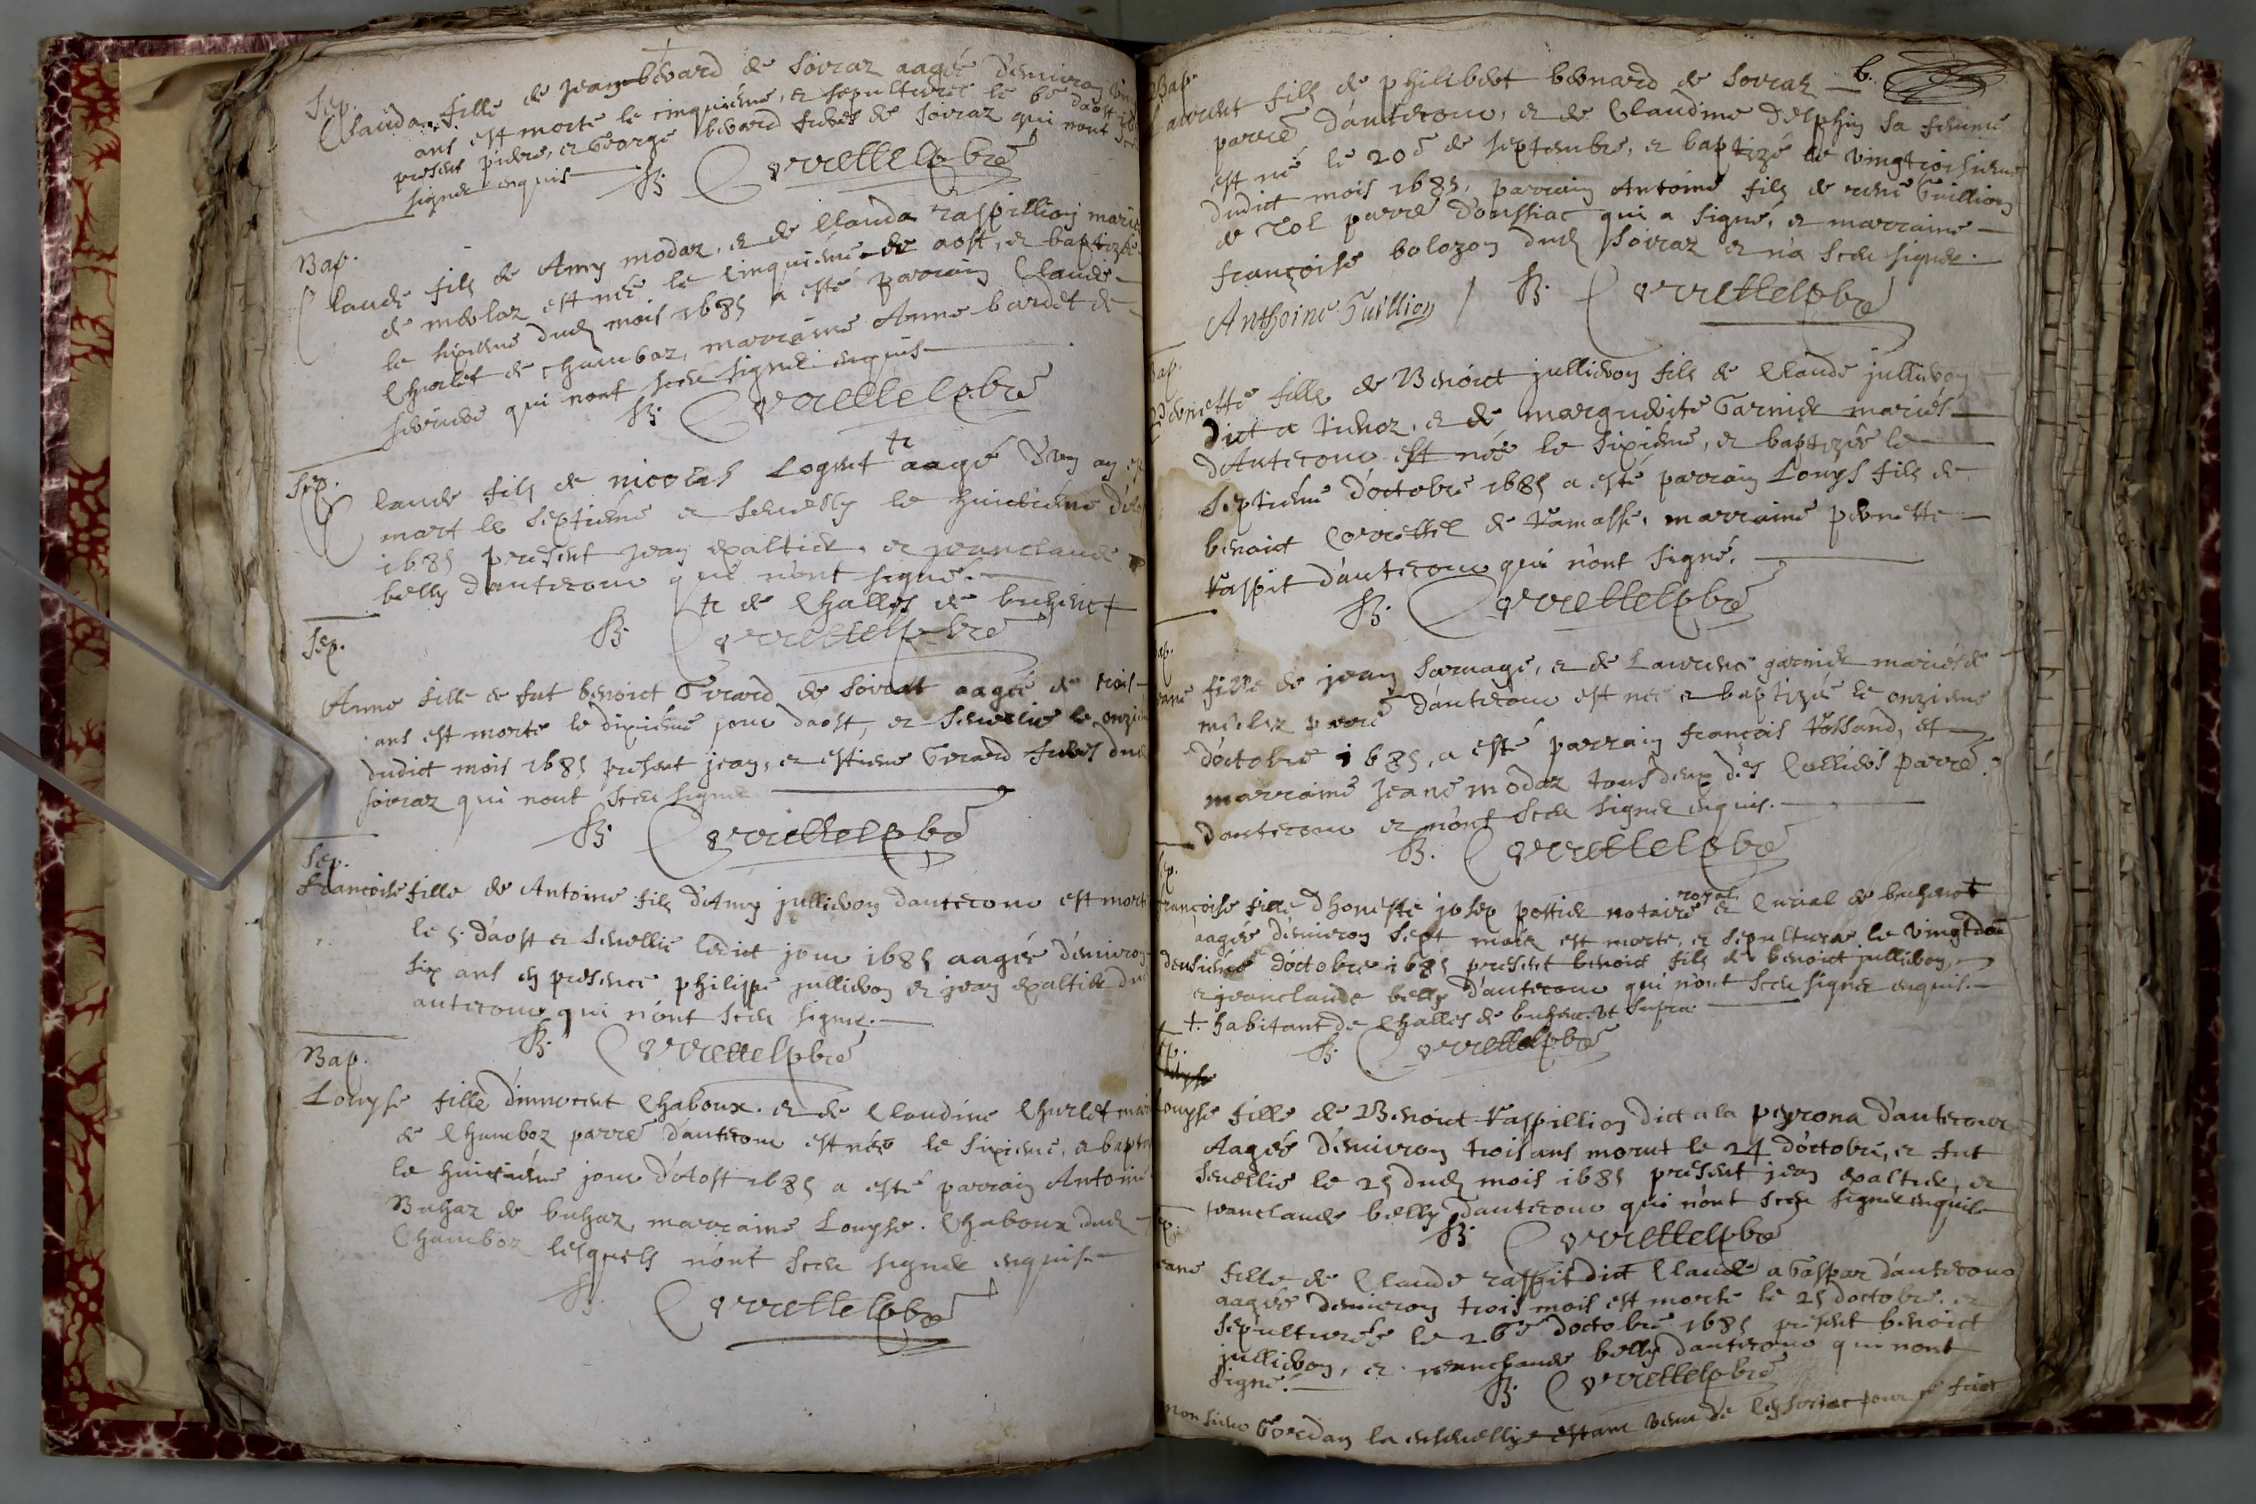 Sep.
Clauda fille de Jean bérard de Soiraz aagée d'environ
ans est morte le cinquiéme, et sepulturée le 6e daost
present pierre, et George bérard freres de Soiraz qui nont sceu
signer enquis
B. Correttel pbre
Bap.
Claude filz de Amy modaz, et de Clauda raspillion mariés
de merloz est née le Cinquiéme de aost, et baptizé
le sixiéme dud mois 1685 a esté parrain Claude
Churlet de Chamboz, marraine Anne bardet de
qui nont sceu signer enquis
B. Correttel pbre
Sep.
Claude filz de nicolas Logent tr aagé d'un an est
mort le septiéme et sevelly le huictiéme d'
1685 present Jean expaltier, et jeanclaude
belly d'autecour qui n'ont signé.
tr de Challes de buhenct
B. Correttel pbre
Sep.
Anne fille de fut benoict Gerard de Soirat aagée de trois
ans est morte le dixiéme jour daost, et sevelie le onziéme
dudict mois 1685 present jean, et estiene Gerard freres dud
Soiraz qui nont sceu signer
B. Correttel pbre
Sep.
francoise fille de Antoine filz d'Amy jullieron dautecour est morte
le 5. d'aost et sevellie ledict jour 1685 aagée d'environ
six ans en presence philippe jullieron et jean expaltier dud
autecour qui n'ont sceu signer.
B. Correttel pbre
Bap.
Louyse fille d'innocent Chaboux. et de Claudine Churlet mariés
de Chamboz parre d'autecour est née le sixiéme, a bapt
le huictiéme jour d'Aost 1685 a esté parrain Antoine
Buhaz de buhaz, marraine Louyse. Chaboux dud
Chamboz lesquels n'ont sceu signer enquis.
B. Correttel pbre
Bap.
Laurent filz de philibert bernard de Soiraz b.
parre d'autecour, et de Claudine Delphin sa femme
est né le 20e de septembre, et baptizé le vingtroisieme
dudict mois 1685, parrain Antoine filz de rené Guillion
de Tol parre d'oussiac qui a signé, et marraine
françoise bolozon dud Soiraz et n'a sceu signer.
Anthoine Guillion / B. Correttel pbre
Bap.
Pernette fille de Benoict jullieron filz de Claude jullieron
dict a tienoz, et de marguerite Garnier mariés
d'Autecour est née le sixiéme, et baptizée le
septiéme d'octobre 1685 a esté parrain Louys filz de
benoict Correttel de Ramasse, marraine pernette
Raspit d'autecour qui n'ont signé.
B. Correttel pbre
Bap.
Jeane fille de jean Sarnage, et de Laurence garnier mariés de
merloz parre d'autecour est née et baptizée le onzieme
d'octobre 1685, a esté parrain françois Rossand, et
marraine Jeane modaz tous deux des Colliers parre.
dautecour et n'ont sceu signer enquis.
B. Correttel pbre
Sep.
françoise fille d'honeste josep pottier notaire royal et Curial de buhenct
aagée d'environ sept mois est morte, et sepulturée le vingt
deuxiéme d'octobre 1685 present benoict filz de benoict jullieron,
et jeanclaude belly d'autecour qui n'ont sceu signer enquis.
+. habitant de Challes de buhenc. ut supra
B. Correttel pbre
Sep.
Louyse fille de Benoict Raspillion dict a la peyrona d'autecour
Aagée d'environ trois ans morut le 24 d'octobre, et fut
sevellie le 25 dud mois 1685 present jean expaltier, et
jeanclaude belly d'autecour qui n'ont sceu signer enquis
B. Correttel pbre
Sep.
Jeane fille de Claude raspit dict Claude a Gaspar d'autecour
aagée d'environ trois mois est morte le 25 doctobre. et
sepulturée le 26e d'octobre 1685 present benoict
jullieron, et jeanclaude belly d'autecour qui nont
signé.
B. Correttel pbre
monsieur Gordan la ensevellye estant venu de